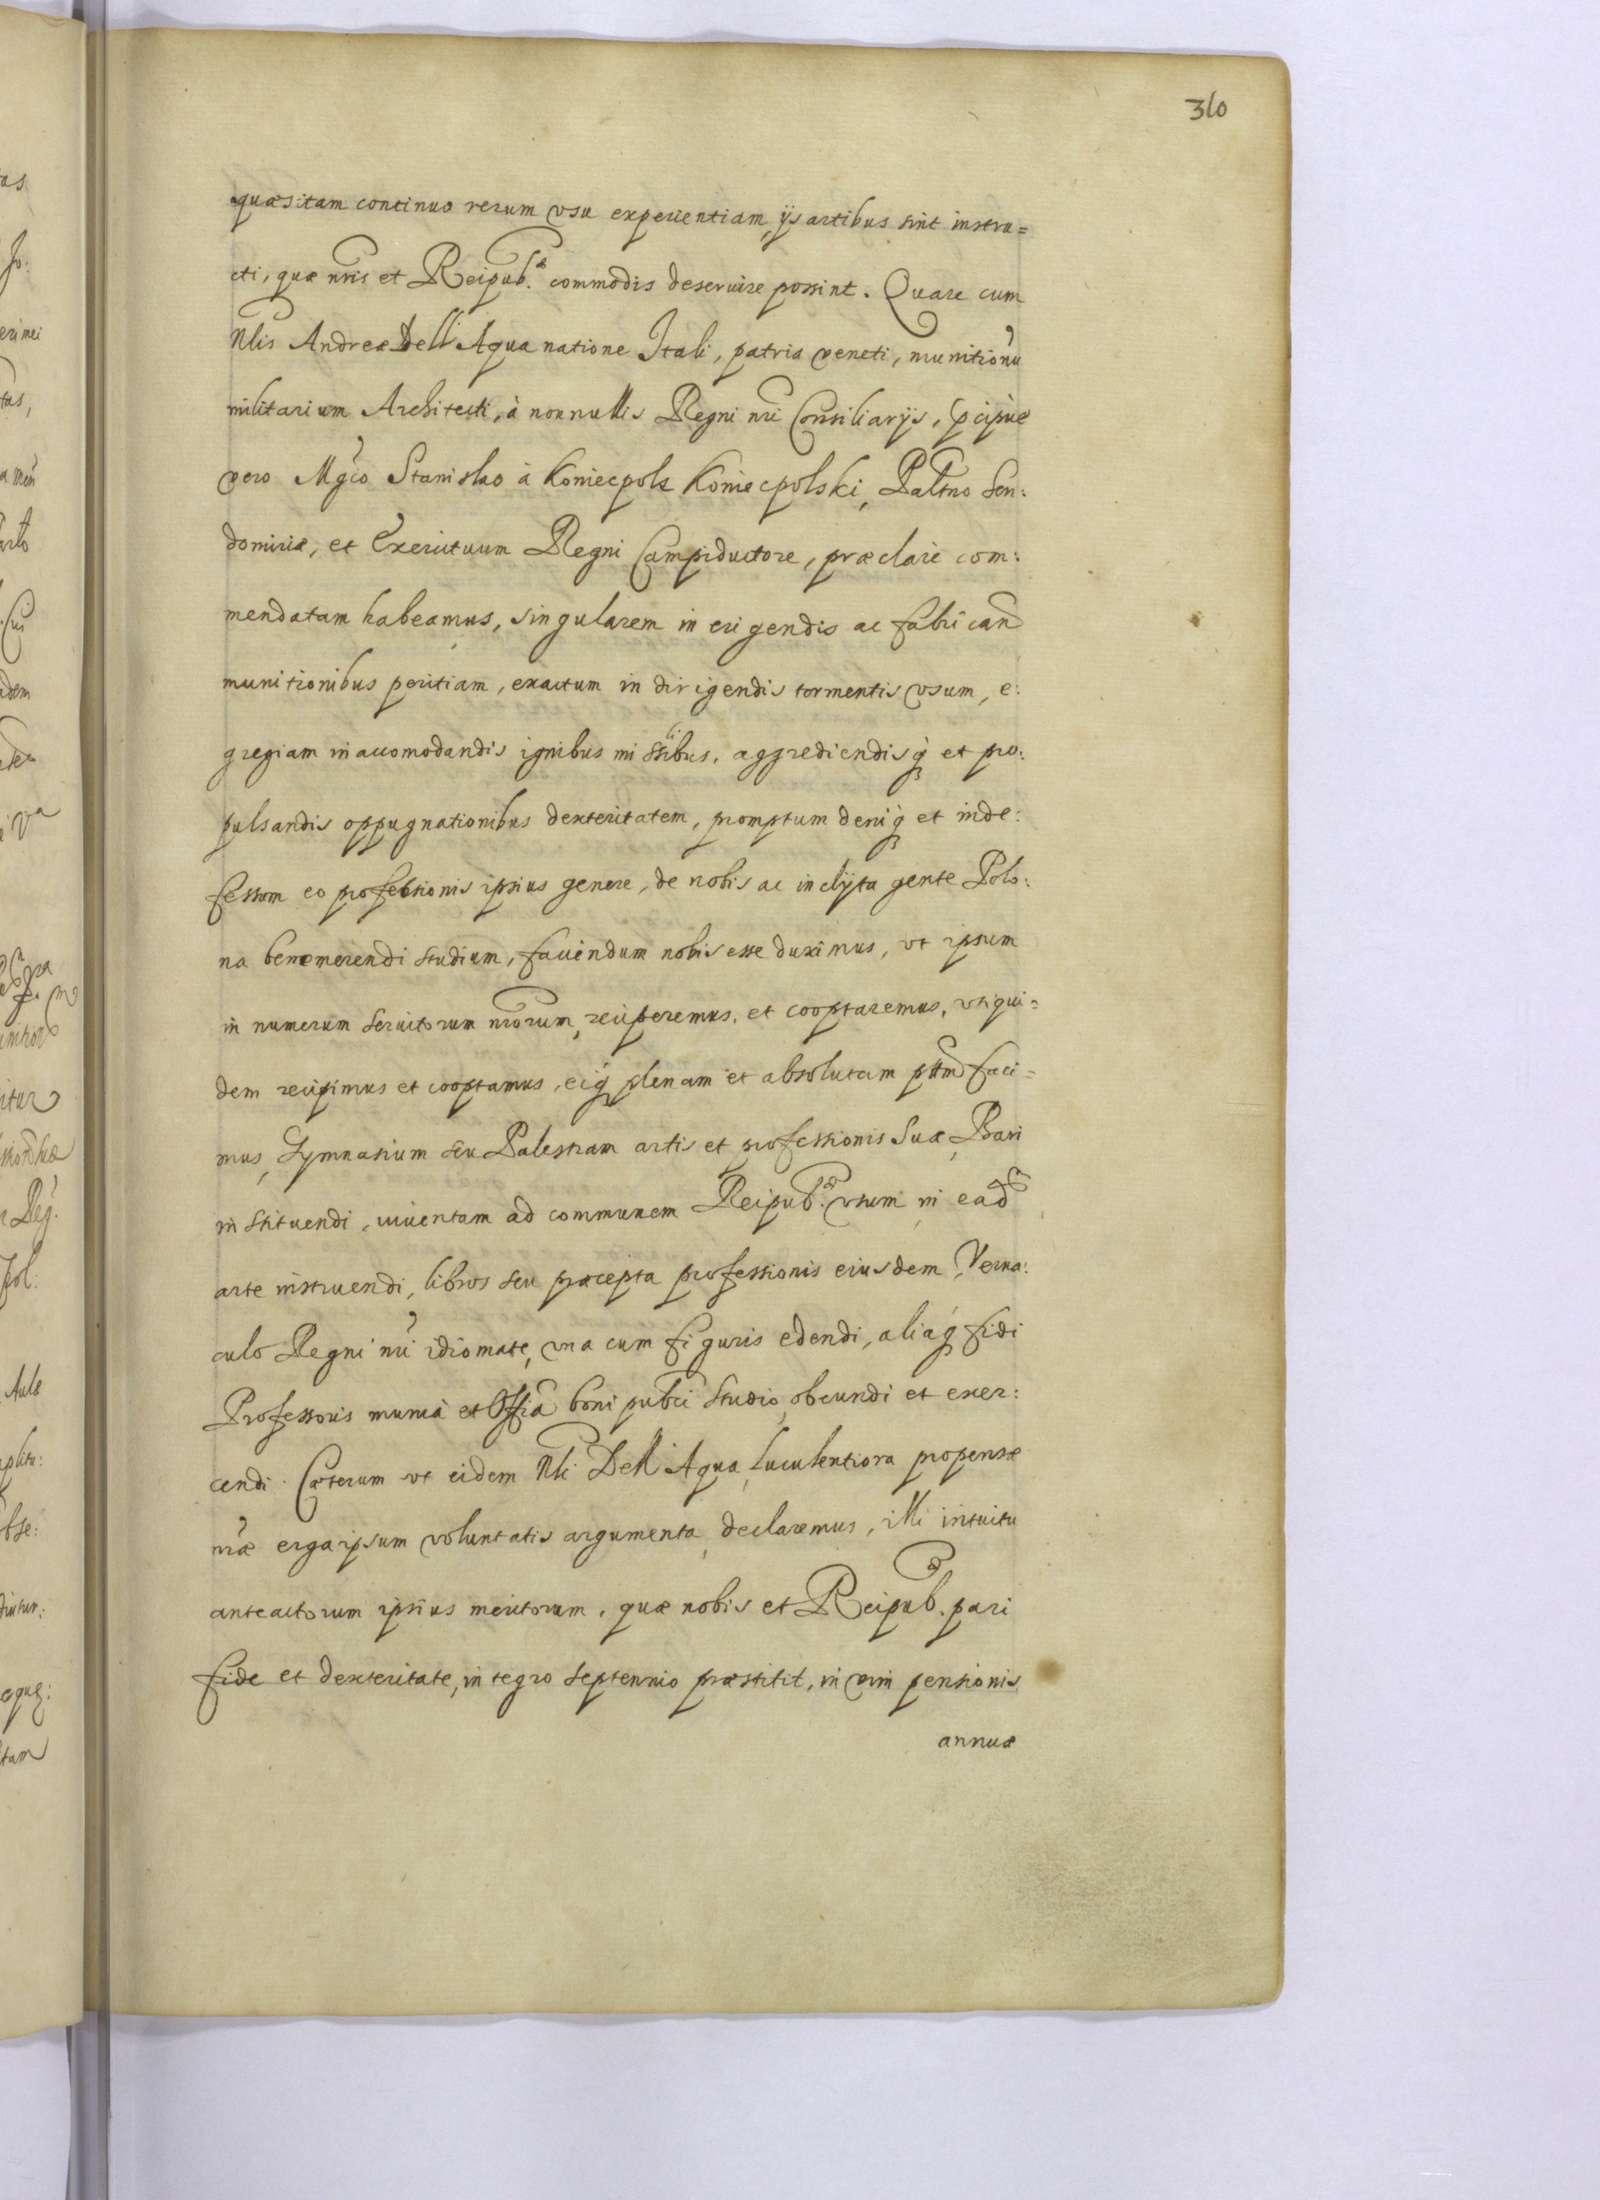 310
quæsitam continuo rerum vsu experientiam, ijs artibus sint instru=
cti, quæ nris et Reipub.æ commodis deseruire possint. Quare cum
Nlis Andreæ Dell Aqua natione Itali, patria veneti, munitionu
militarium Architecti, à nonnullis Regni nri Consiliarijs, pcipue
vero Mgco Stanislao à Koniecpole Koniecpolski, Paltno Sen:
domiriæ, et Exercituum Regni Campiductore, præclare com:
mendatam habeamus, singularem in erigendis ac fabricand
munitionibus peritiam, exactum in dirigendis tormentis vsum, e:
gregiam in accomodandis ignibus missilibus, aggrediendisq et pro:
pulsandis oppugnationibus dexteritatem, promptum deniq et inde:
fessom eo professionis ipsius genere, de nobis ac inclyta gente Polo:
na benemerendi studium, fauendum nobis esse duximus, vt ipsum
in numerum seruitorum nrorum, reciperemus, et cooptaremus, vti qui=
dem recipimus et cooptamus, eiq plenam et absolutam pttm faci=
mus, Gymnasium seu Palestram artis et professionis suæ, Bari
instituendi, iuuentam ad communem Reipub.æ vsum in ead
arte instruendi, libros seu præcepta professionis eiusdem, Verna:
culo Regni nri idiomate, vna cum figuris edendi, aliaq fidi
Professoris munia et Offia boni pubci studio, obeundi et exer:
cendi. Cæterum vt eidem Nli Dell Aqua, luculentiora propensæ
nræ erga ipsum voluntatis argumenta, declaremus, illi intuitu
anteactorum ipsius meritorum, quæ nobis et Reipub.æ pari
fide et dexteritate, integro septennio præstitit, in vim pensionis
annuæ